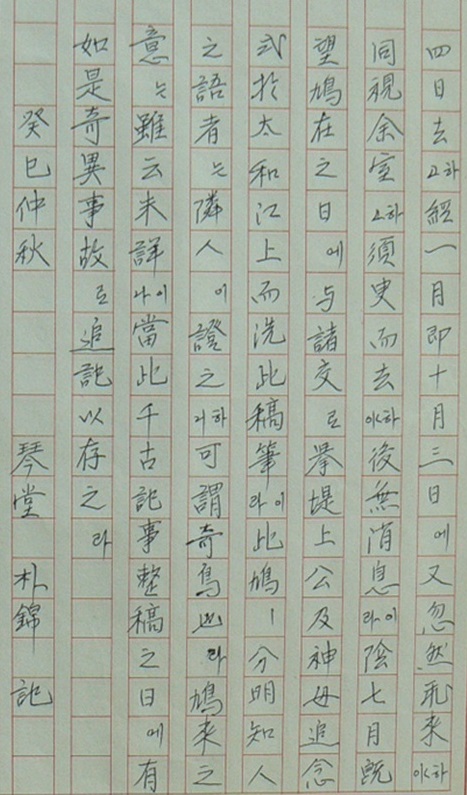 四日去하고經一月即十月三日에又忽然飛來하야
同視余室하고須臾而去하야後無消息이라陰七月旣
望鳩在之日에与諸交로擧堤上公及神母追念
式於太和江上而洗此稿筆이라此鳩ㅣ分明知人
之語者는隣人이證之하거可謂奇鳥也라鳩來之
意는雖云未詳이나當此千古記事整稿之日에有
如是奇異事故로追記以存之라
癸巳仲秋 琴堂 朴錦 記